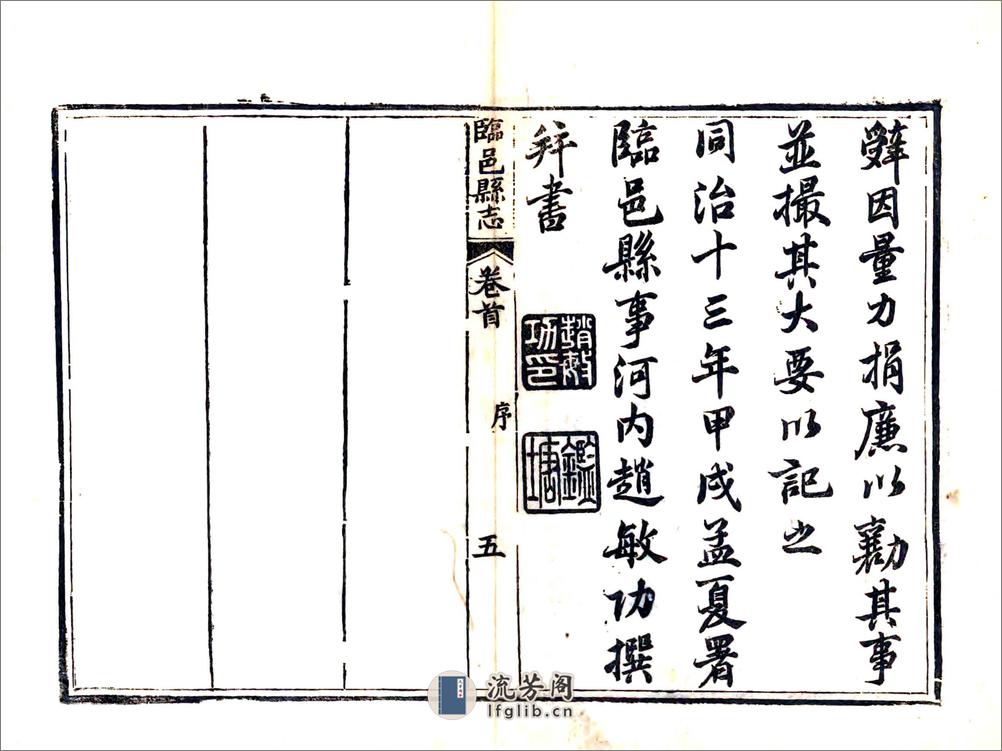 辤因量力捐廉以勷其事
並撮其大要以記之
同治十三年甲戌孟夏署
臨邑縣事河内趙敏功撰
并書
趙敏功印
鑑塘
臨邑縣志
卷首
序
五
流芳阁
lfglib.cn